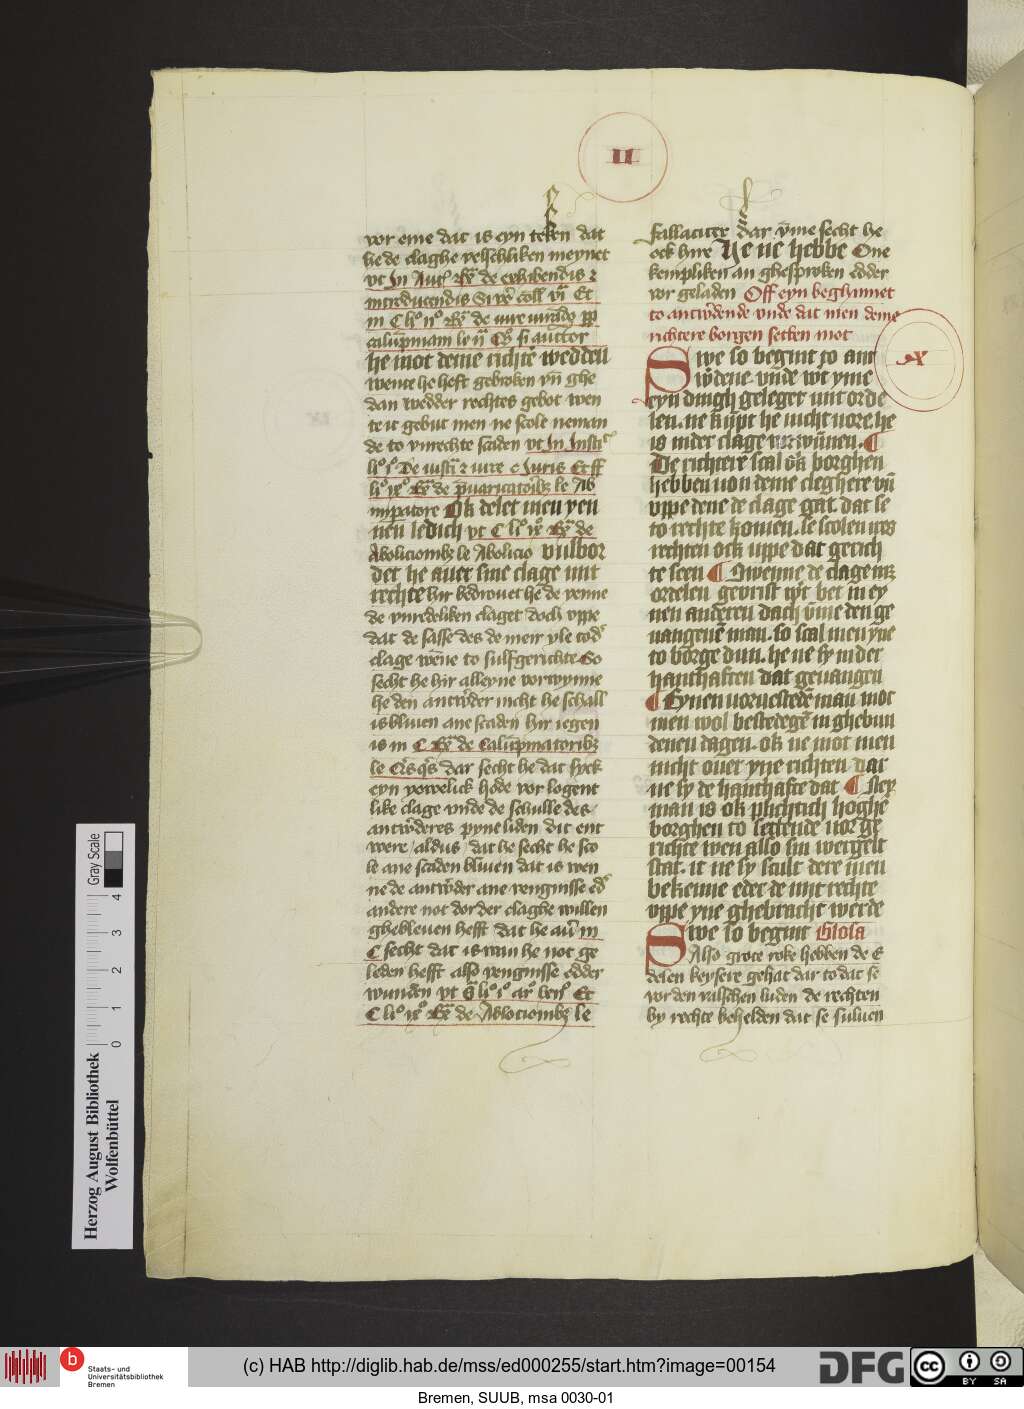 II
vor eme dat is eyn teken dat
he de claghe velschliken meynet
vt Jn Aut̉ Rẻ de exhibendis ꝛ
introducendis
calūpniam le
he mot deme richte wedden
wente he heft gebroken vn̄ ghe
dan wedder rechtes gebot wen
te it gebut men ne scole neman
de to vnrechte scaden vt Jn Insti
de iusti ꝛ iure
impatore Ok delet men yen
nen ledich vt C
Aboliciombꝫ le Abolicio vulbor
det he auer sine clage mit
rechte hir bedrouet he de yenne
de vnredeliken claget doch vppe
dat de sasse des de meir yle to d
clage wene to sulfgerichte So
secht he hir alleyne vorwynne
he den antw̄der nicht he schall
is bliuen ane scaden hir iegen
is in C Rẻ de Calūpniatoribꝫ
dar secht he dat syck
eyn yowelick hode vor logent
like clage vnde de schulle des
antw̄deres pyne liden dit ent
were aldus dat he secht he sco
le ane scaden bliuen dat is wen
ne de antw̄der ane vengnisse ed̉
andere not dor der claghe willen
ghebleuen hefft dat he au̅ in
C secht dat is wan he not ge
leden hefft also vengnisse edder
wunden vt
de Abolociombꝫ le
fallaciter dar v̄me secht he
ock hire Ne ne hebbe One
kempliken an ghesproken edder
vor geladen Off eyn beghinnet
to antw̄dende vnde dat men deme
richtere borgen setten mot
X
Swe so begint to ant
w̄dene vnde wt yme
eyn dingh geleget mit orde
len. ne kūpt he nicht vore. he
is in der clage vorwūnen. ¶
De richtere scal ok borghen
hebben uon deme cleghere vn̄
vppe dene de clage gat. dat se
to rechte komen. se scolen uor
rechten ock uppe dat gerich
te seen ¶ Swenne de clage mꝫ
ordelen geurist wt bet in ey
nen anderen dach v̄me den ge
uangenē man. so scal men yne
to borge dun. he ne sy in der
hanthaften dat geuangen
¶ Eynen uoruestedē man mot
men wol bestedegē in ghebun
denen dagen. ok ne mot men
nicht ouer yne richten dat
ne sy de hanthafte dat ¶ Neỵ
man is ok plichtich hoghe
borghen to settende uor ge
richte wen allo sin wergelt
stat. it ne sy scult dere men
bekenne eder de mit rechte
vppe yne ghebracht werde
Swe so begint Glosa
Also grote roke hebben de E
delen keysere gehat dar to dat se
vor den valschen luden de rechten
by rechte behelden dat se suluen
Herzog August Bibliothek
Wolfenbüttel
0 1 2 3 4
Gray Scale
Staats- und
Universitätsbibliothek
Bremen
(c) HAB http://diglib.hab.de/mss/ed000255/start.htm?image=00154
DFG
cc BY SA
Bremen, SUUB, msa 0030-01